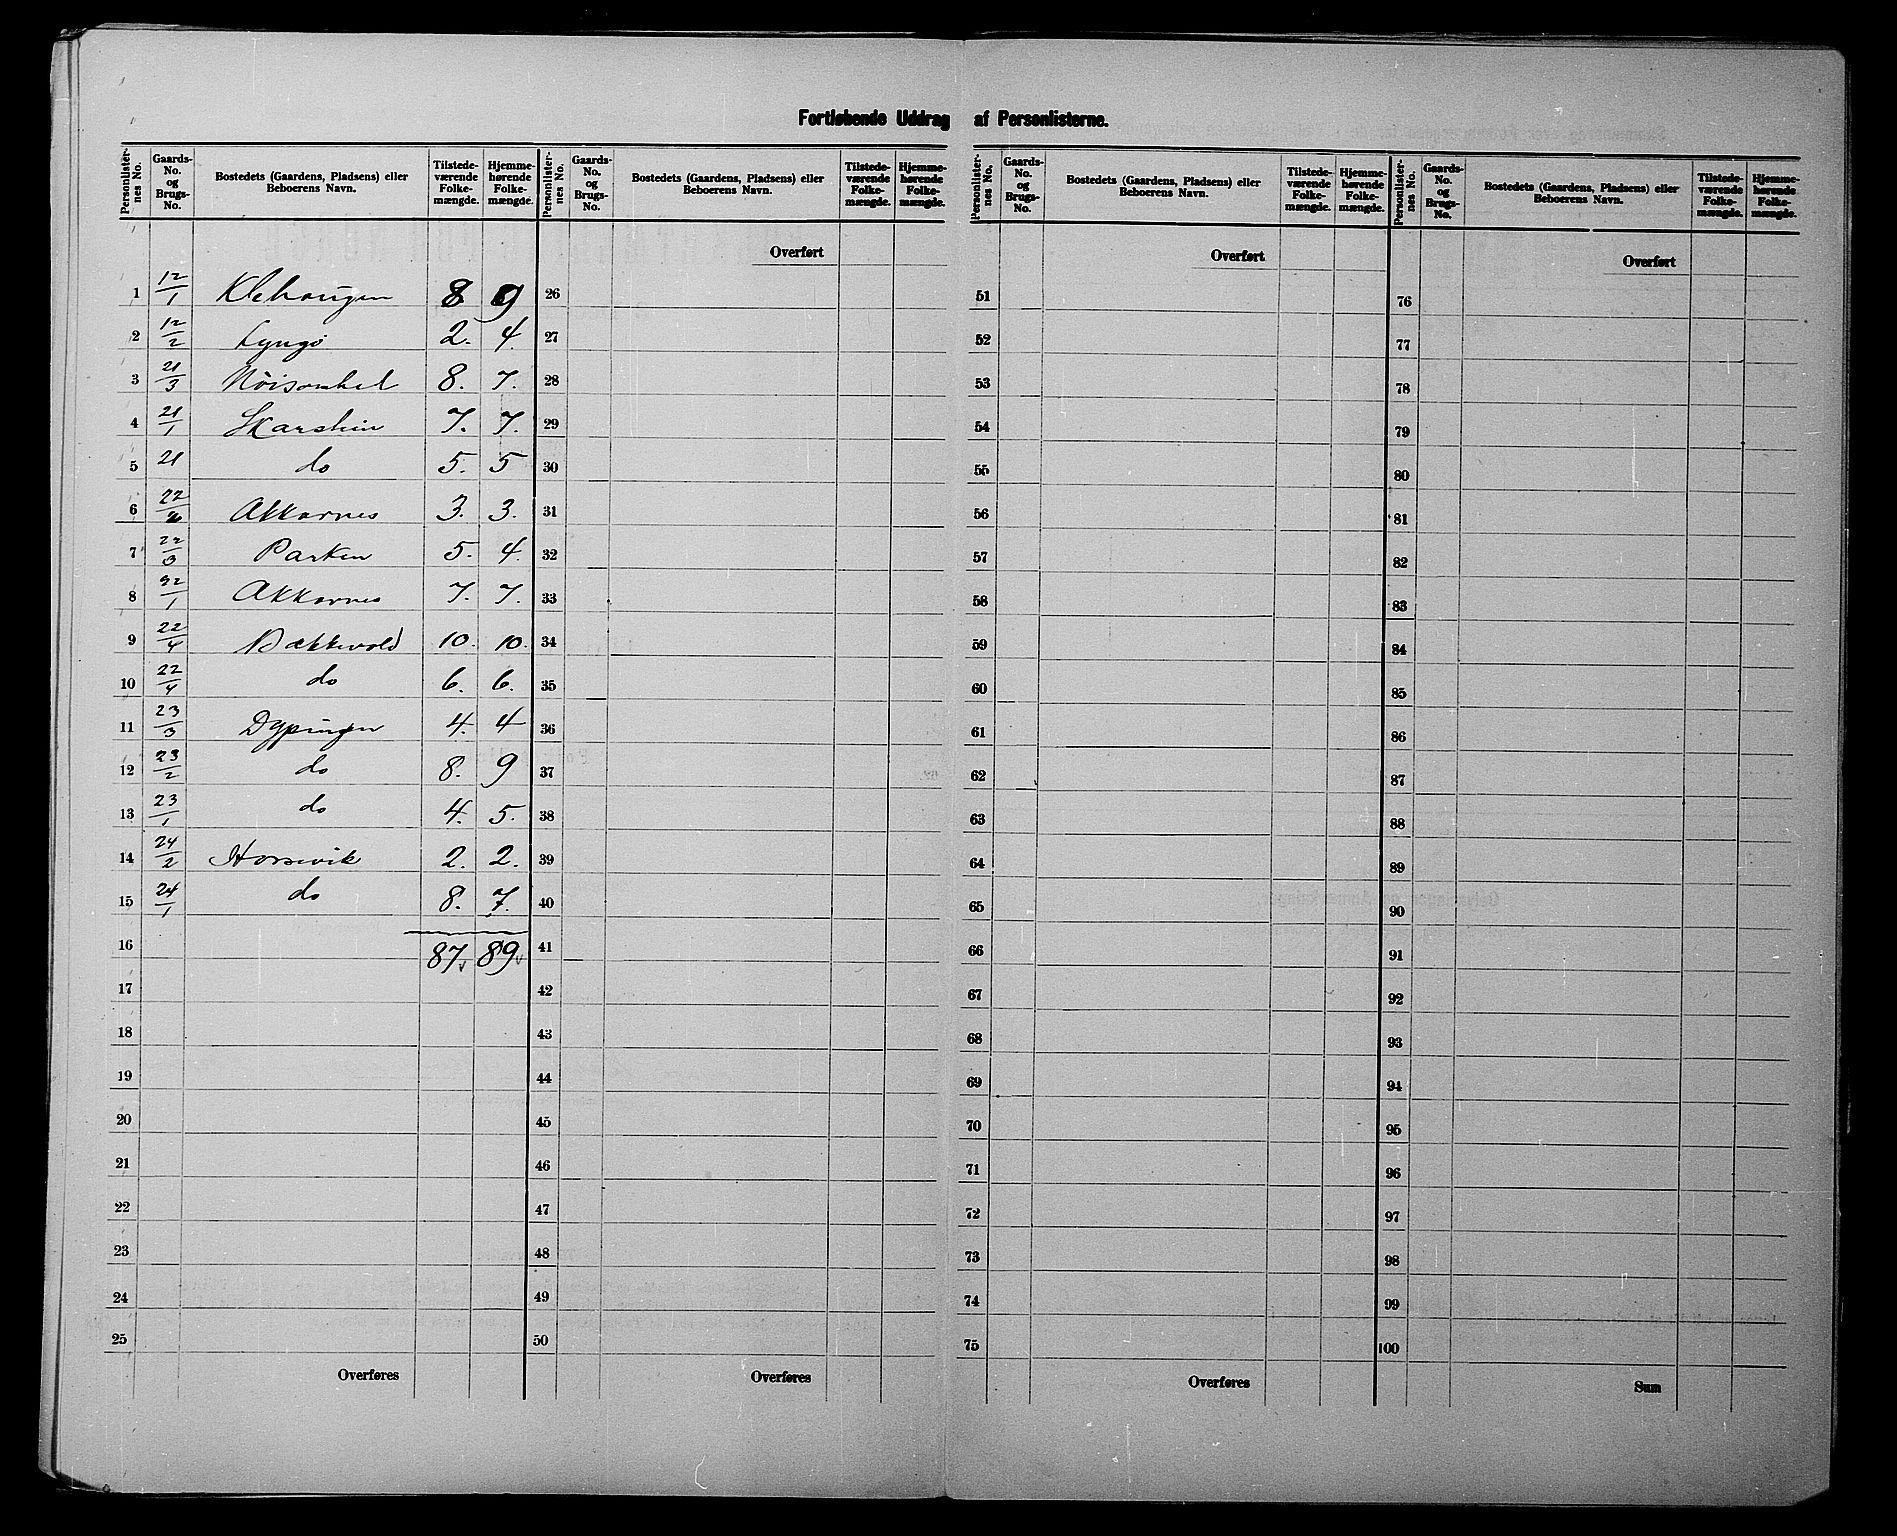 Fortløbende Uddrag af Personlisterne.
Personlisternes No. | Gaards-No. og Brugs-No. | Bostedets (Gaardens, Pladsens) eller Beboerens Navn. | Tilstedeværende Folkemængde. | Hjemmehørende Folkemængde. | Personlisternes No. | Gaards-No. og Brugs-No. | Bostedets (Gaardens, Pladsens) eller Beboerens Navn. | Tilstedeværende Folkemængde. | Hjemmehørende Folkemængde. | Personlisternes No. | Gaards-No. og Brugs-No. | Bostedets (Gaardens, Pladsens) eller Beboerens Navn. | Tilstedeværende Folkemængde. | Hjemmehørende Folkemængde. | Personlisternes No. | Gaards-No. og Brugs-No. | Bostedets (Gaardens, Pladsens) eller Beboerens Navn. | Tilstedeværende Folkemængde. | Hjemmehørende Folkemængde.
Overført Overført Overført
1 12/1 Klehaugen 8 9 26 51 76
2 12/2 Lyngø 2. 4. 27 52 77
3 21/3 8. 7. 28 53 78
4 21/1 Skarstein 7. 7. 29 54 79
5 21 do 5. 5 30 55 80
6 22/2 Akkarnes 3. 3. 31 56 81
7 22/3 Parken 5. 4. 32 57 82
8 22/1 Akkarnes 7. 7. 33 58 83
9 22/4 Bækkevold 10. 10. 34 59 84
10 22/4 do 6. 6. 35 60 85
11 23/3 Dypingen 4. 4 36 61 86
12 23/2 do 8. 9 37 62 87
13 23/1 do 4. 5. 38 63 88
14 24/2 Horsevik 2. 2. 39 64 89
15 24/1 do 8. 7. 40 65 90
16 87 89 41 66 91
17 42 67 92
18 43 68 93
19 44 69 94
20 45 70 95
21 46 71 96
22 47 72 97
23 48 73 98
24 49 74 99
25 50 75 100
Overføres Overføres Overføres Sum